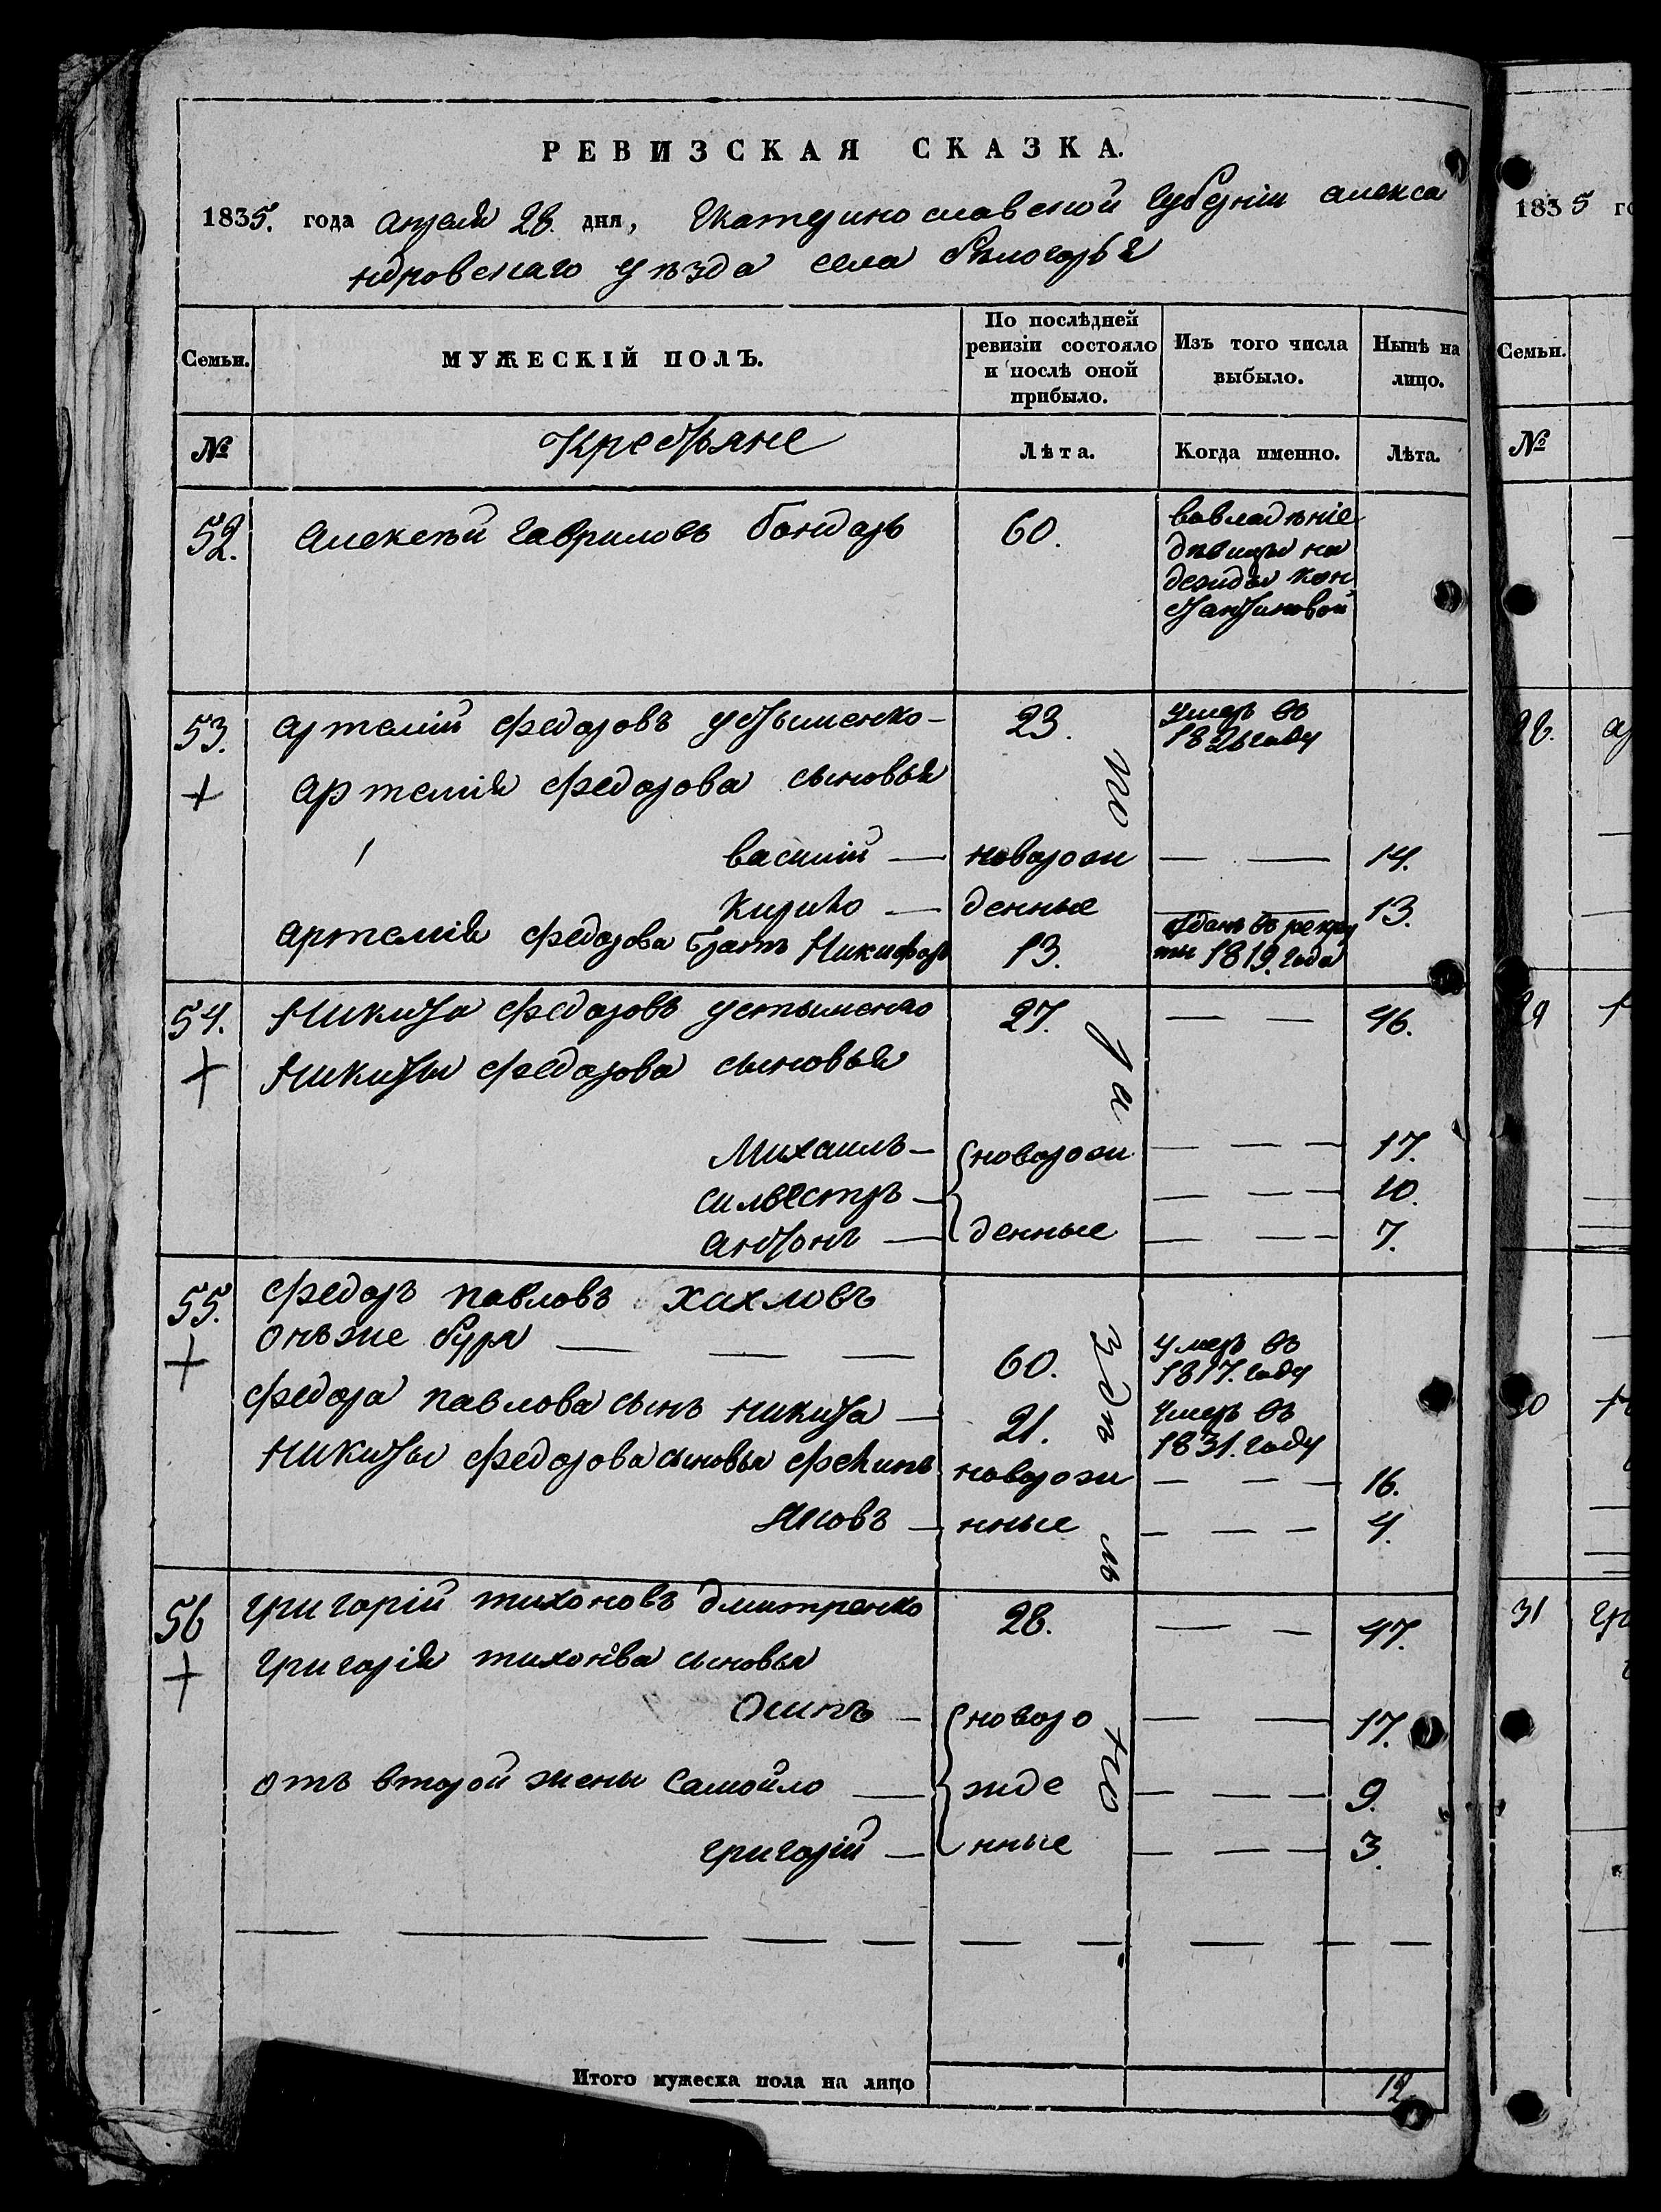 РЕВИЗСКАЯ СКАЗКА.
1835. года апреля 28. дня, Екатеринославской губерніи алекса
ндровскаго уѣзда села бѣлогорья
Семьи. МУЖЕСКІЙ ПОЛЪ. По послѣдней ревизіи состояло и послѣ оной прибыло. Изъ того числа выбыло. Нынѣ на лицо.
№ Крестьяне Лѣта. Когда именно. Лѣта.
52. алексѣй гавриловъ бондарь 60. вовладѣніе
дѣвицы на
дежды кон
стантиновой
53. артемій федоровъ устыменко — 23. умеръ въ
1826 году
артемія федорова сыновья
василій — новорож — — 14.
кирило — денные — — 13.
артемія федорова братъ Никифоръ 13. отданъ въ рекру
ты 1819. года
54. Никита федоровъ устыменко 27. — — 46.
Никиты федорова сыновья
Михаилъ — новорож — — — 17.
силвестръ — — — — 10.
антонъ — денные — — — 7.
55. федоръ павловъ хахловъ
онъже бура — — — 60. умеръ въ
1817. году
федора павлова сынъ никита — 21. умеръ въ
1831. году
никиты федорова сыновья новорож — — — 16.
яковъ — нные — — — 4.
56 григорій тихоновъ дмитренко 28. — — 47.
григорія тихонова сыновья
осипъ — новоро — — 17.
отъ второй жены самойло — жде — — — 9.
григорій — нные — — — 3.
Итого мужеска пола на лицо 12
1835 го
Семьи.
№
28. ар
29
30
31 гр